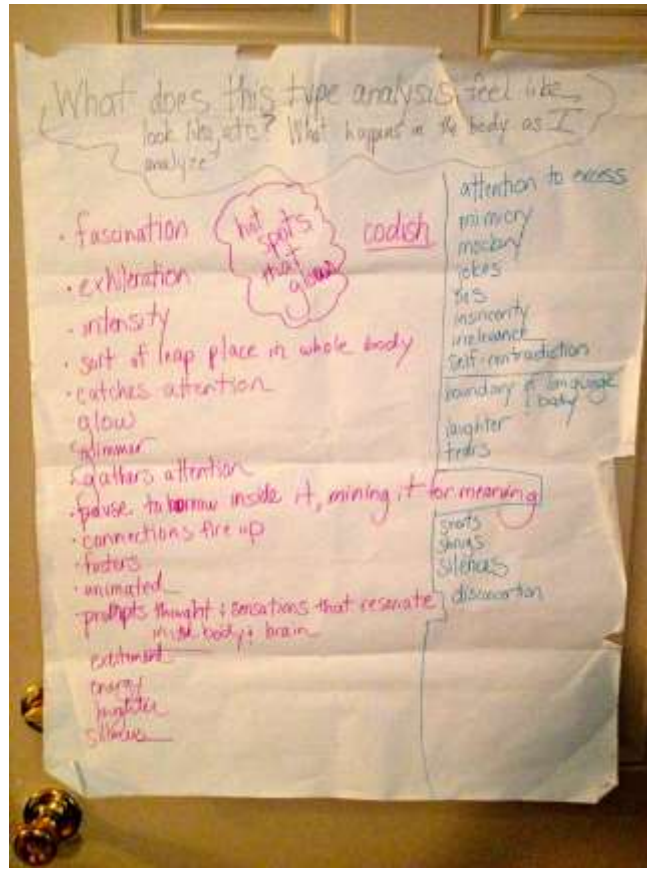 What does this type analysis feel like,
look like, etc? What happens in the body as I
analyze
• fascination
hot
spots
that
glow
codish
• exhileration
• intensity
• sort of leap place in whole body
• catches attention
glow
glimmer
gathers attention
• pause to burrow inside it, mining it for meaning
• connections fire up
• fosters
• animated
• prompts thought & sensations that resonate
in the body & brain
excitement
energy
laughter
silences
attention to excess
mimicry
mockery
jokes
insincerity
irrelevance
self-contradiction
boundary of language
& body
laughter
tears
snorts
shrugs
silences